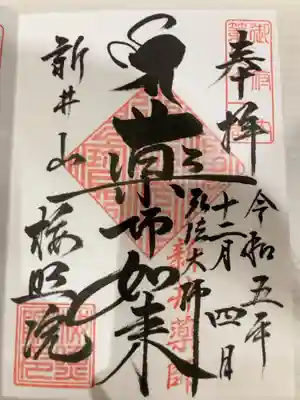 奉拝
令和五年
十二月四日
弘法大師
薬師如来
新井山
梅照院